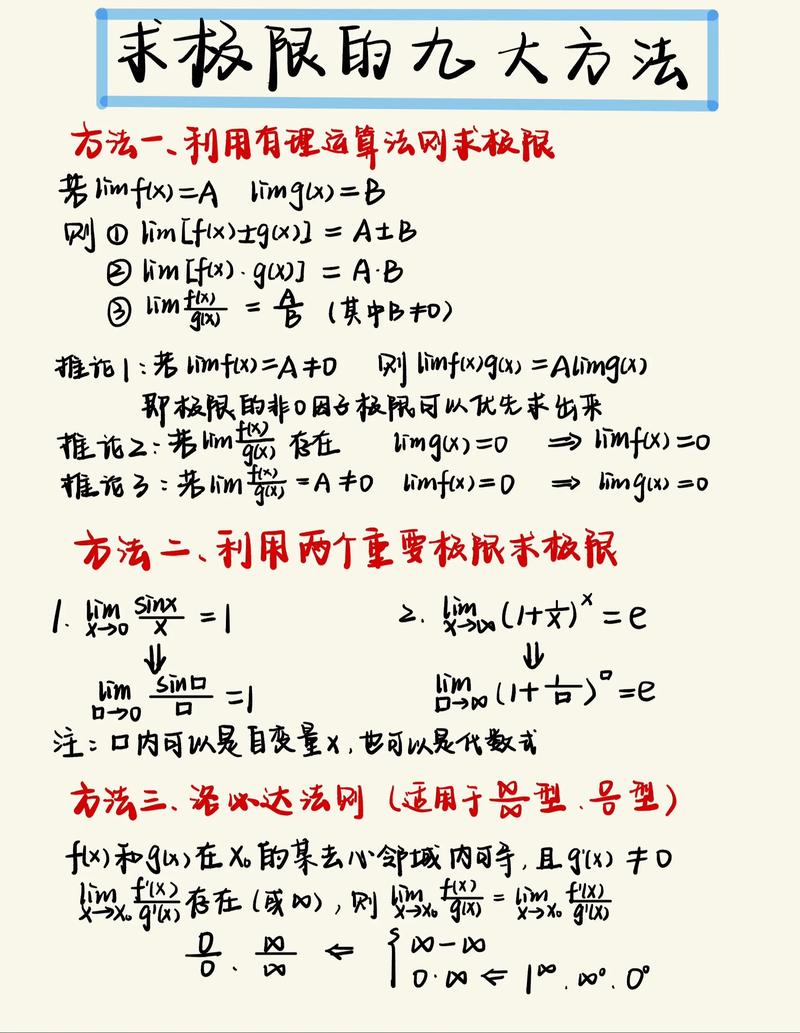 求极限的九大方法
方法一、利用有理运算法则求极限
若 lim f(x) = A  lim g(x) = B
则 ① lim [f(x) ± g(x)] = A ± B
② lim [f(x) · g(x)] = A · B
③ lim f(x)/g(x) = A/B (其中B≠0)
推论1:若 lim f(x) = A ≠ 0  则 lim f(x)g(x) = A lim g(x)
即极限的非0因子极限可以优先求出来
推论2:若 lim f(x)/g(x) 存在  lim g(x) = 0 ⇒ lim f(x) = 0
推论3:若 lim f(x)/g(x) = A ≠ 0  lim f(x) = 0 ⇒ lim g(x) = 0
方法二、利用两个重要极限求极限
1. lim x→0 sinx/x = 1  2. lim x→∞ (1+1/x)^x = e
⇓  ⇓
lim □→0 sin□/□ = 1  lim □→∞ (1+1/□)^□ = e
注:□内可以是自变量x,也可以是代数式
方法三、洛必达法则(适用于∞/∞型、0/0型)
f(x)和g(x)在x₀的某去心邻域内可导,且g'(x) ≠ 0
lim x→x₀ f'(x)/g'(x) 存在(或∞),则 lim x→x₀ f(x)/g(x) = lim x→x₀ f'(x)/g'(x)
0/0 、 ∞/∞ ⇐ { ∞ - ∞
0·∞ ⇐ 1^∞、∞⁰、0⁰